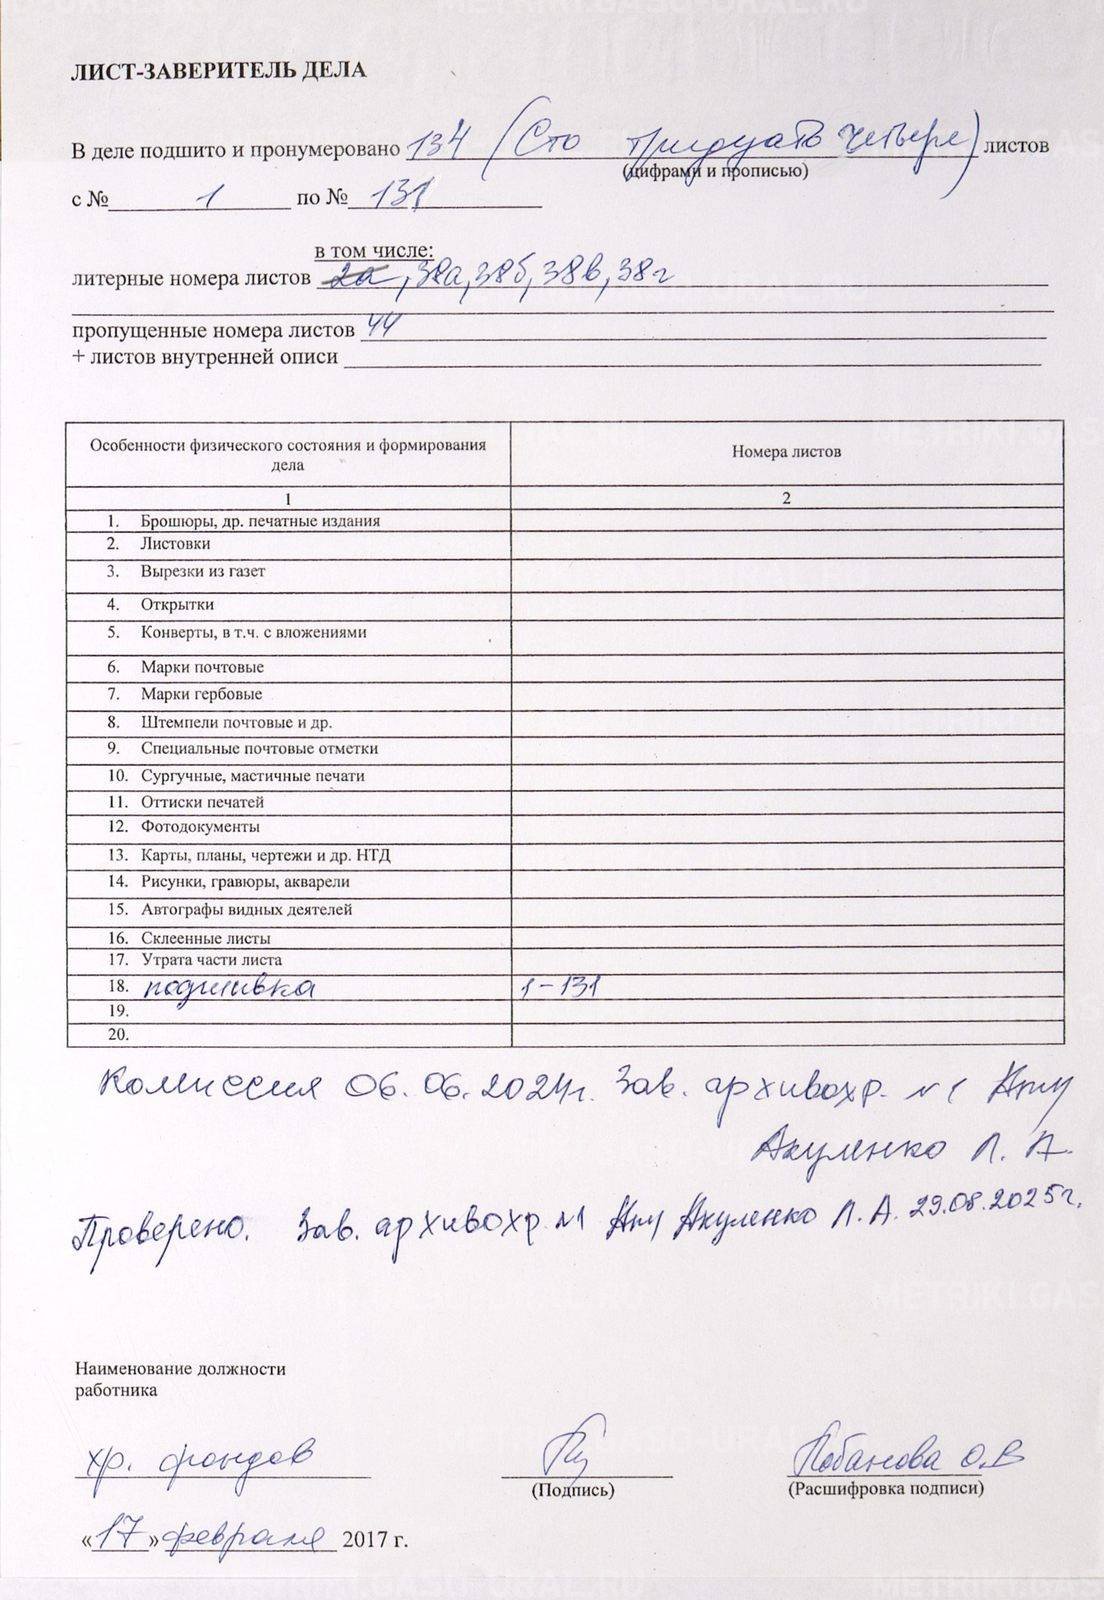 ЛИСТ-ЗАВЕРИТЕЛЬ ДЕЛА
В деле подшито и пронумеровано 134 (Сто тридцать четыре) листов
(цифрами и прописью)
с № 1 по № 131
в том числе:
литерные номера листов 2а, 38а, 38б, 38в, 38г
пропущенные номера листов 44
+ листов внутренней описи
Особенности физического состояния и формирования дела Номера листов
1 2
1. Брошюры, др. печатные издания
2. Листовки
3. Вырезки из газет
4. Открытки
5. Конверты, в т.ч. с вложениями
6. Марки почтовые
7. Марки гербовые
8. Штемпели почтовые и др.
9. Специальные почтовые отметки
10. Сургучные, мастичные печати
11. Оттиски печатей
12. Фотодокументы
13. Карты, планы, чертежи и др. НТД
14. Рисунки, гравюры, акварели
15. Автографы видных деятелей
16. Склеенные листы
17. Утрата части листа
18. подшивка 1-131
19.
20.
Комиссия 06.06.2024г. Зав. архивохр. №1
Акуленко Л. А.
Проверено. Зав. архивохр. №1 Акуленко Л. А. 29.08.2025г.
Наименование должности
работника
хр. фондов Лобанова О.В
(Подпись) (Расшифровка подписи)
«17» февраля 2017 г.
METRIKI.GASO-URAL.RU